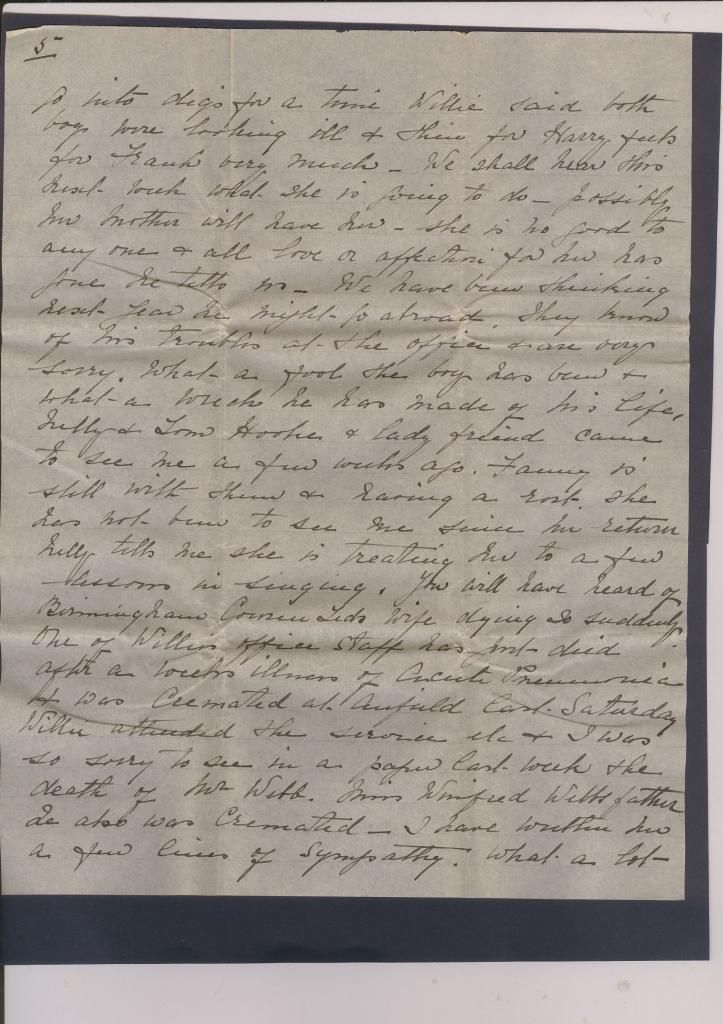 5
go into digs for a time Willie said both
boys were looking ill & thin for Harry feels
for Frank very much – We shall hear this
next week what she is going to do – possibly
her mother will have her – she is no good to
any one & all love or affection for her has
gone he tells us – We have been thinking
next year he might go abroad. They know
of his troubles at the office & are very
sorry. What a fool the boy has been &
what a wreck he has made of his life.
Nelly & Tom Hooke & lady friend came
to see me a few weeks ago. Fanny is
still with them & having a rest she
has not been to see me since her return
Nelly tells me she is treating her to a few
lessons in singing. You will have heard of
Birmingham Cousin Teds wife dying so suddenly.
One of Willies office staff has just died
after a weeks illness of Acute Pneumonia
& was Cremated at Anfield last Saturday
Willie attended the service etc & I was
so sorry to see in a paper last week the
death of Mr Webb. Miss Winifred Webbs father
he also was Cremated – I have written her
a few lines of Sympathy. What a lot